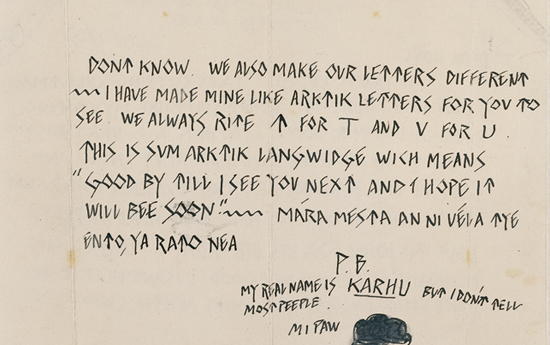 DONT KNOW. WE ALSO MAKE OUR LETTERS DIFFERENT
~~~ I HAVE MADE MINE LIKE ARKTIK LETTERS FOR YOU TO
SEE. WE ALWAYS RITE ↑ FOR T AND V FOR U.
THIS IS SVM ARKTIK LANGWIDGE WICH MEANS
"GOOD BY TILL I SEE YOU NEXT AND I HOPE IT
WILL BEE SOON." ~~~ MÁRA MESTA AN NI VÉLA TYE
ENTO, YA RATO NEA
P.B.
MY REAL NAME IS KARHU BUT I DON'T TELL
MOST PEEPLE.
MI PAW